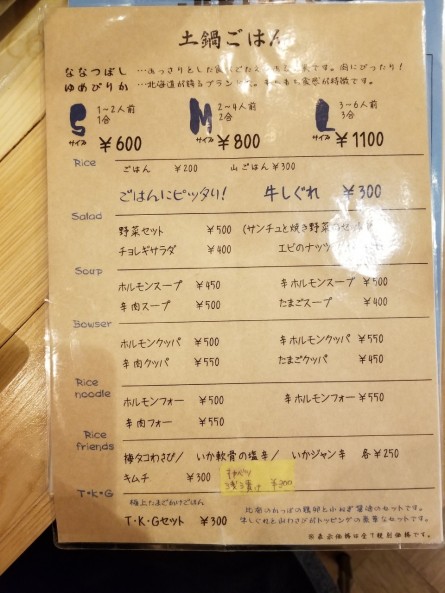 土鍋ごはん
ななつぼし …あっさりとした
ゆめぴりか …北海道が誇るブランド が特徴です。
S サイズ 1~2人前 1合 ¥600
M サイズ 2~4人前 2合 ¥800
L サイズ 3~6人前 3合 ¥1100
Rice
ごはん ¥200 山ごはん ¥300
ごはんにピッタリ! 牛しぐれ ¥300
Salad
野菜セット ¥500 (サンチュと焼き野菜の
チョレギサラダ ¥400 エビのナッツ
Soup
ホルモンスープ ¥450 辛ホルモンスープ ¥500
辛肉スープ ¥500 たまごスープ ¥400
Bowser
ホルモンクッパ ¥500 辛ホルモンクッパ ¥550
辛肉クッパ ¥550 たまごクッパ ¥450
Rice noodle
ホルモンフォー ¥500 辛ホルモンフォー ¥550
辛肉フォー ¥550
Rice friends
梅タコわさび/ いか軟骨の塩辛/ いかジャン辛 各¥250
キムチ ¥300 キャベツ 浅漬け ¥300
T・K・G
極上たまごかけごはん
T・K・Gセット ¥300
のセットです。
牛しぐれと山わさびがトッピングの豪華なセットです。
※表示価格は全て税別価格です。